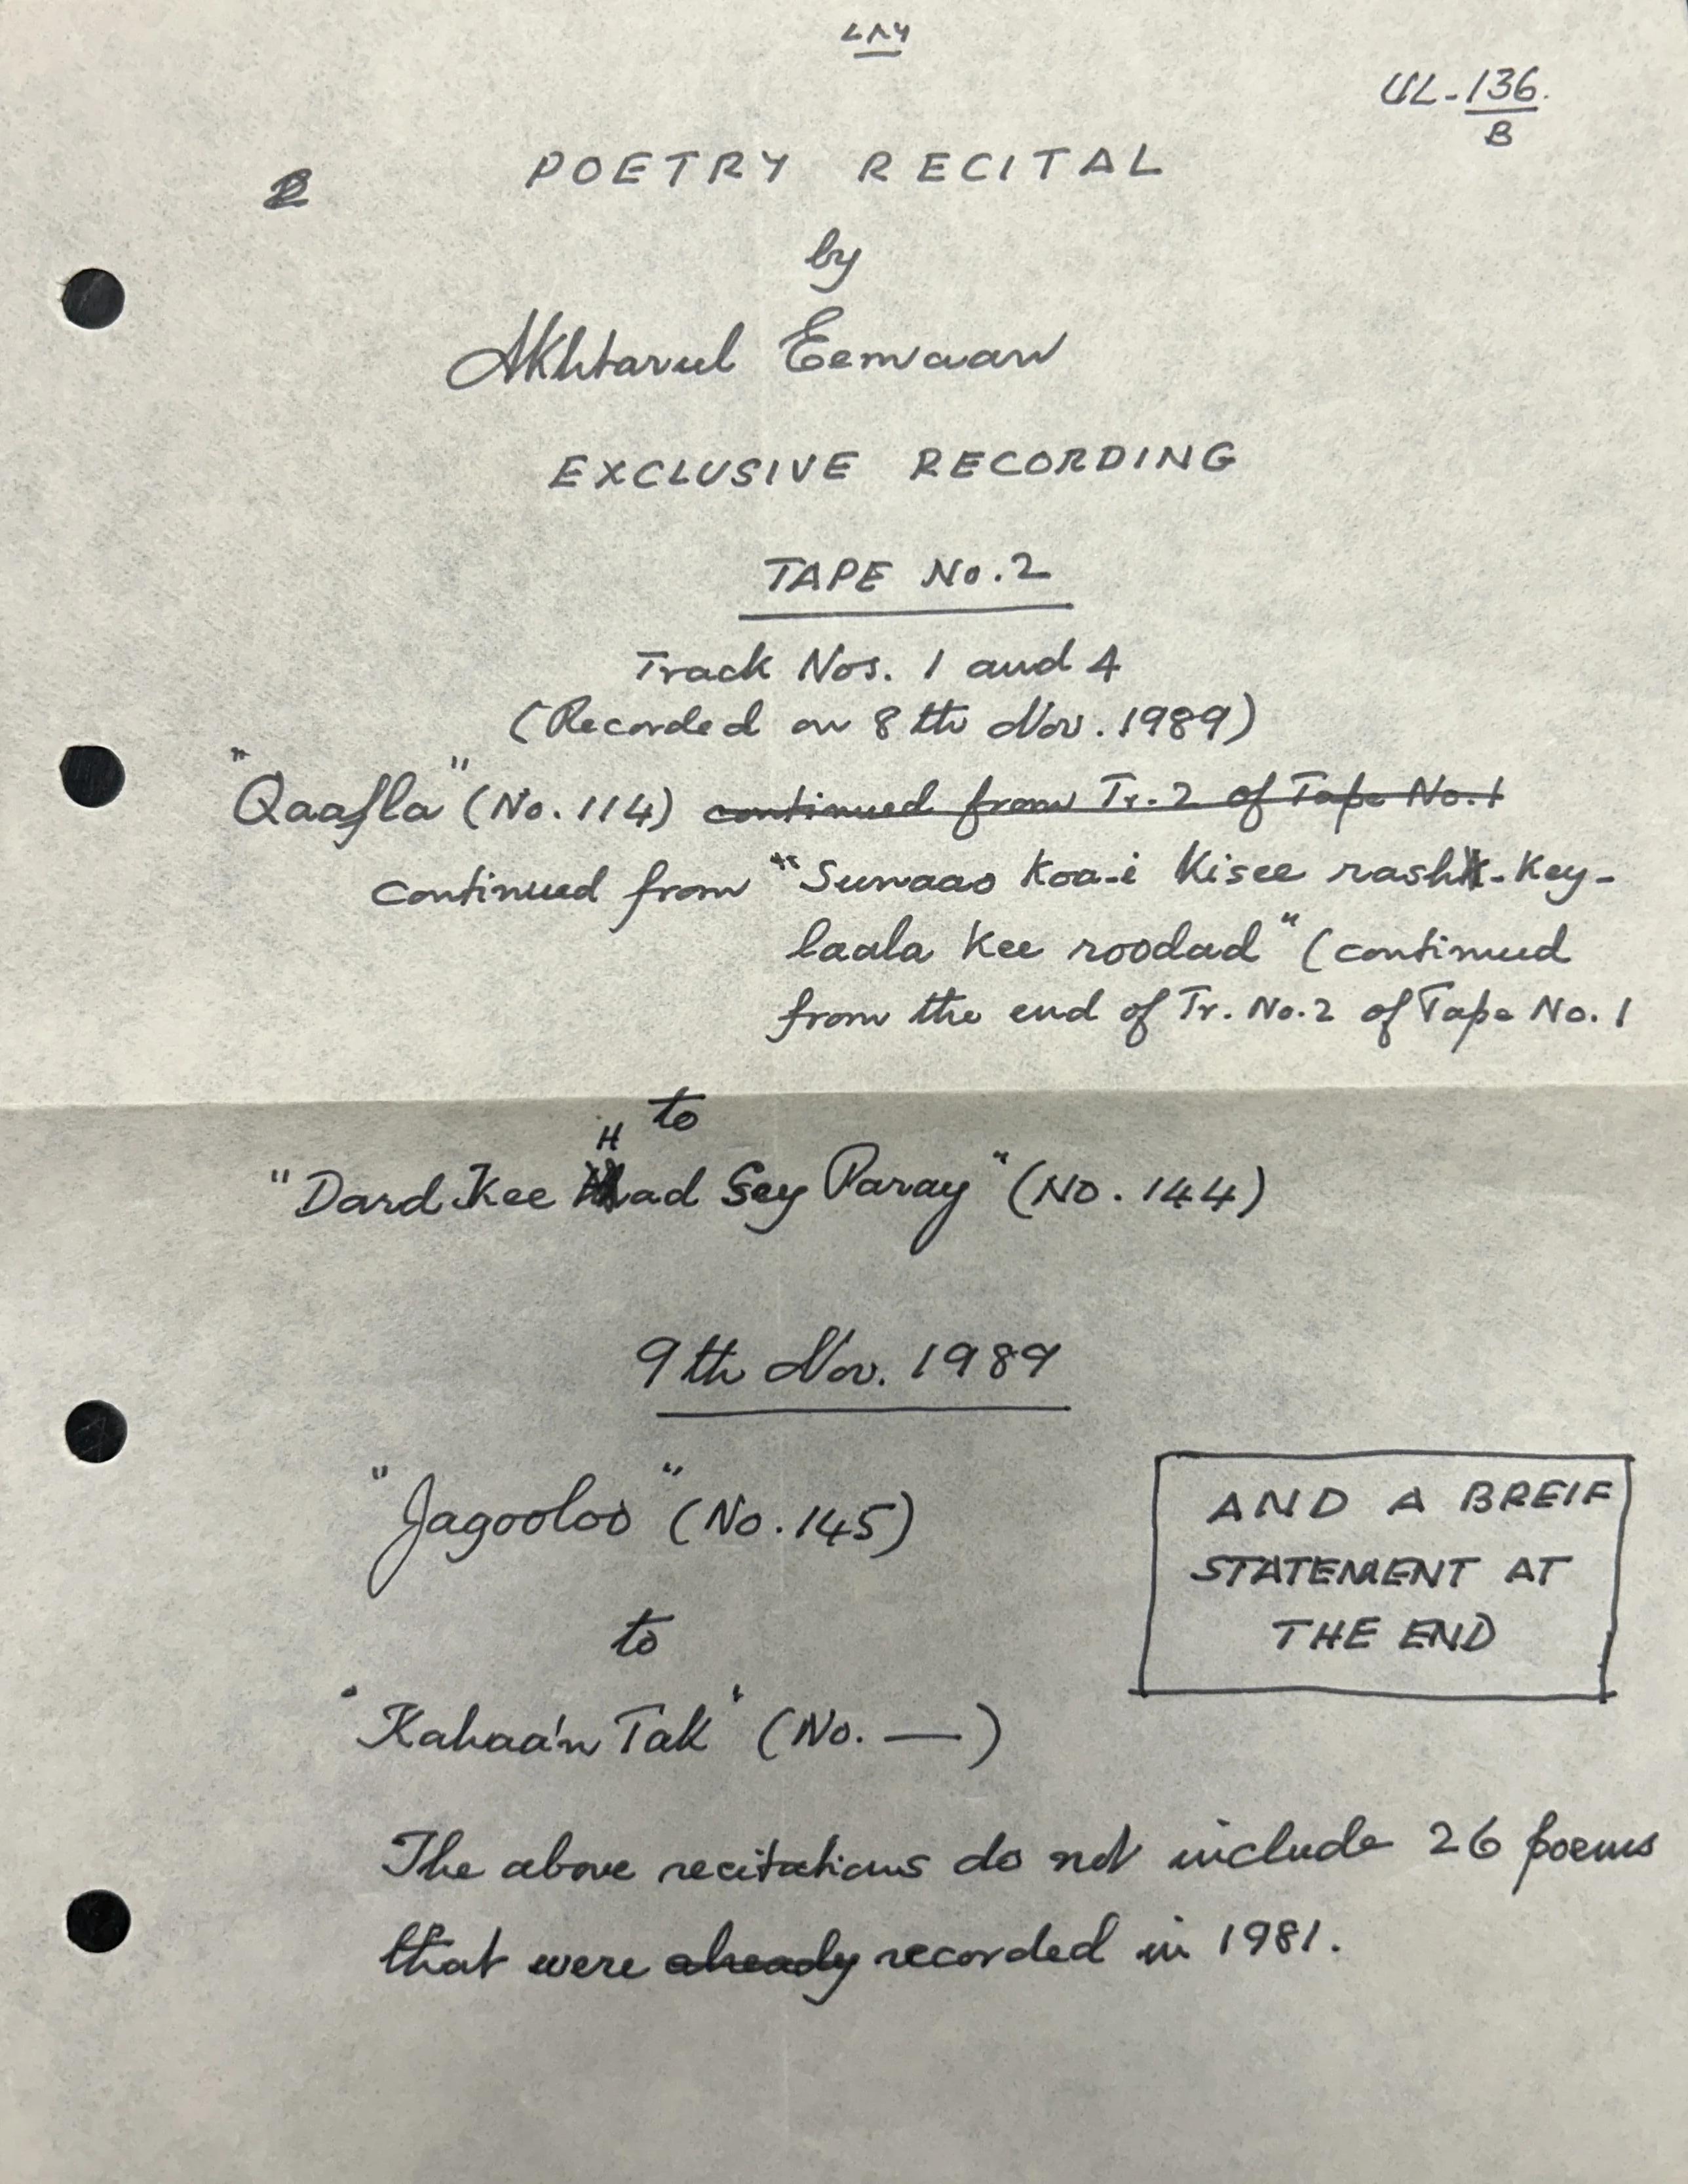 UL-136
B
POETRY RECITAL
by
Akhtarul Eemaan
EXCLUSIVE RECORDING
TAPE No.2
Track Nos. 1 and 4
(Recorded on 8th Nov. 1989)
"Qaafla" (No. 114) continued from Tr.2 of Tape No.1
continued from "Sunaao koa-i kisee rashk-key-
laala kee roodad" (continued
from the end of Tr. No.2 of Tape No. 1
to
H
"Dard Kee Had Sey Paray" (No. 144)
9th Nov. 1989
"Jagooloo" (No. 145)
AND A BREIF
STATEMENT AT
THE END
to
"Kahaa'n Tak" (No. —)
The above recitations do not include 26 poems
that were already recorded in 1981.